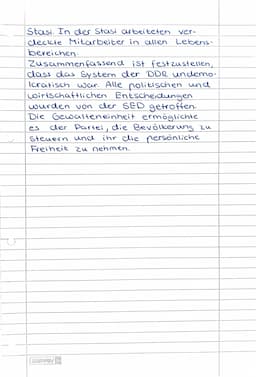 Stasi. In der Stasi arbeiteten ver-
deckte Mitarbeiter in allen Lebens-
bereichen.
Zusammenfassend ist festzustellen,
dass das System der DDR undemo-
kratisch war. Alle politischen und
wirtschaftlichen Entscheidungen
wurden von der SED getroffen.
Die Gewalteneinheit ermöglichte
es der Partei, die Bevölkerung zu
steuern und ihr die persönliche
Freiheit zu nehmen.